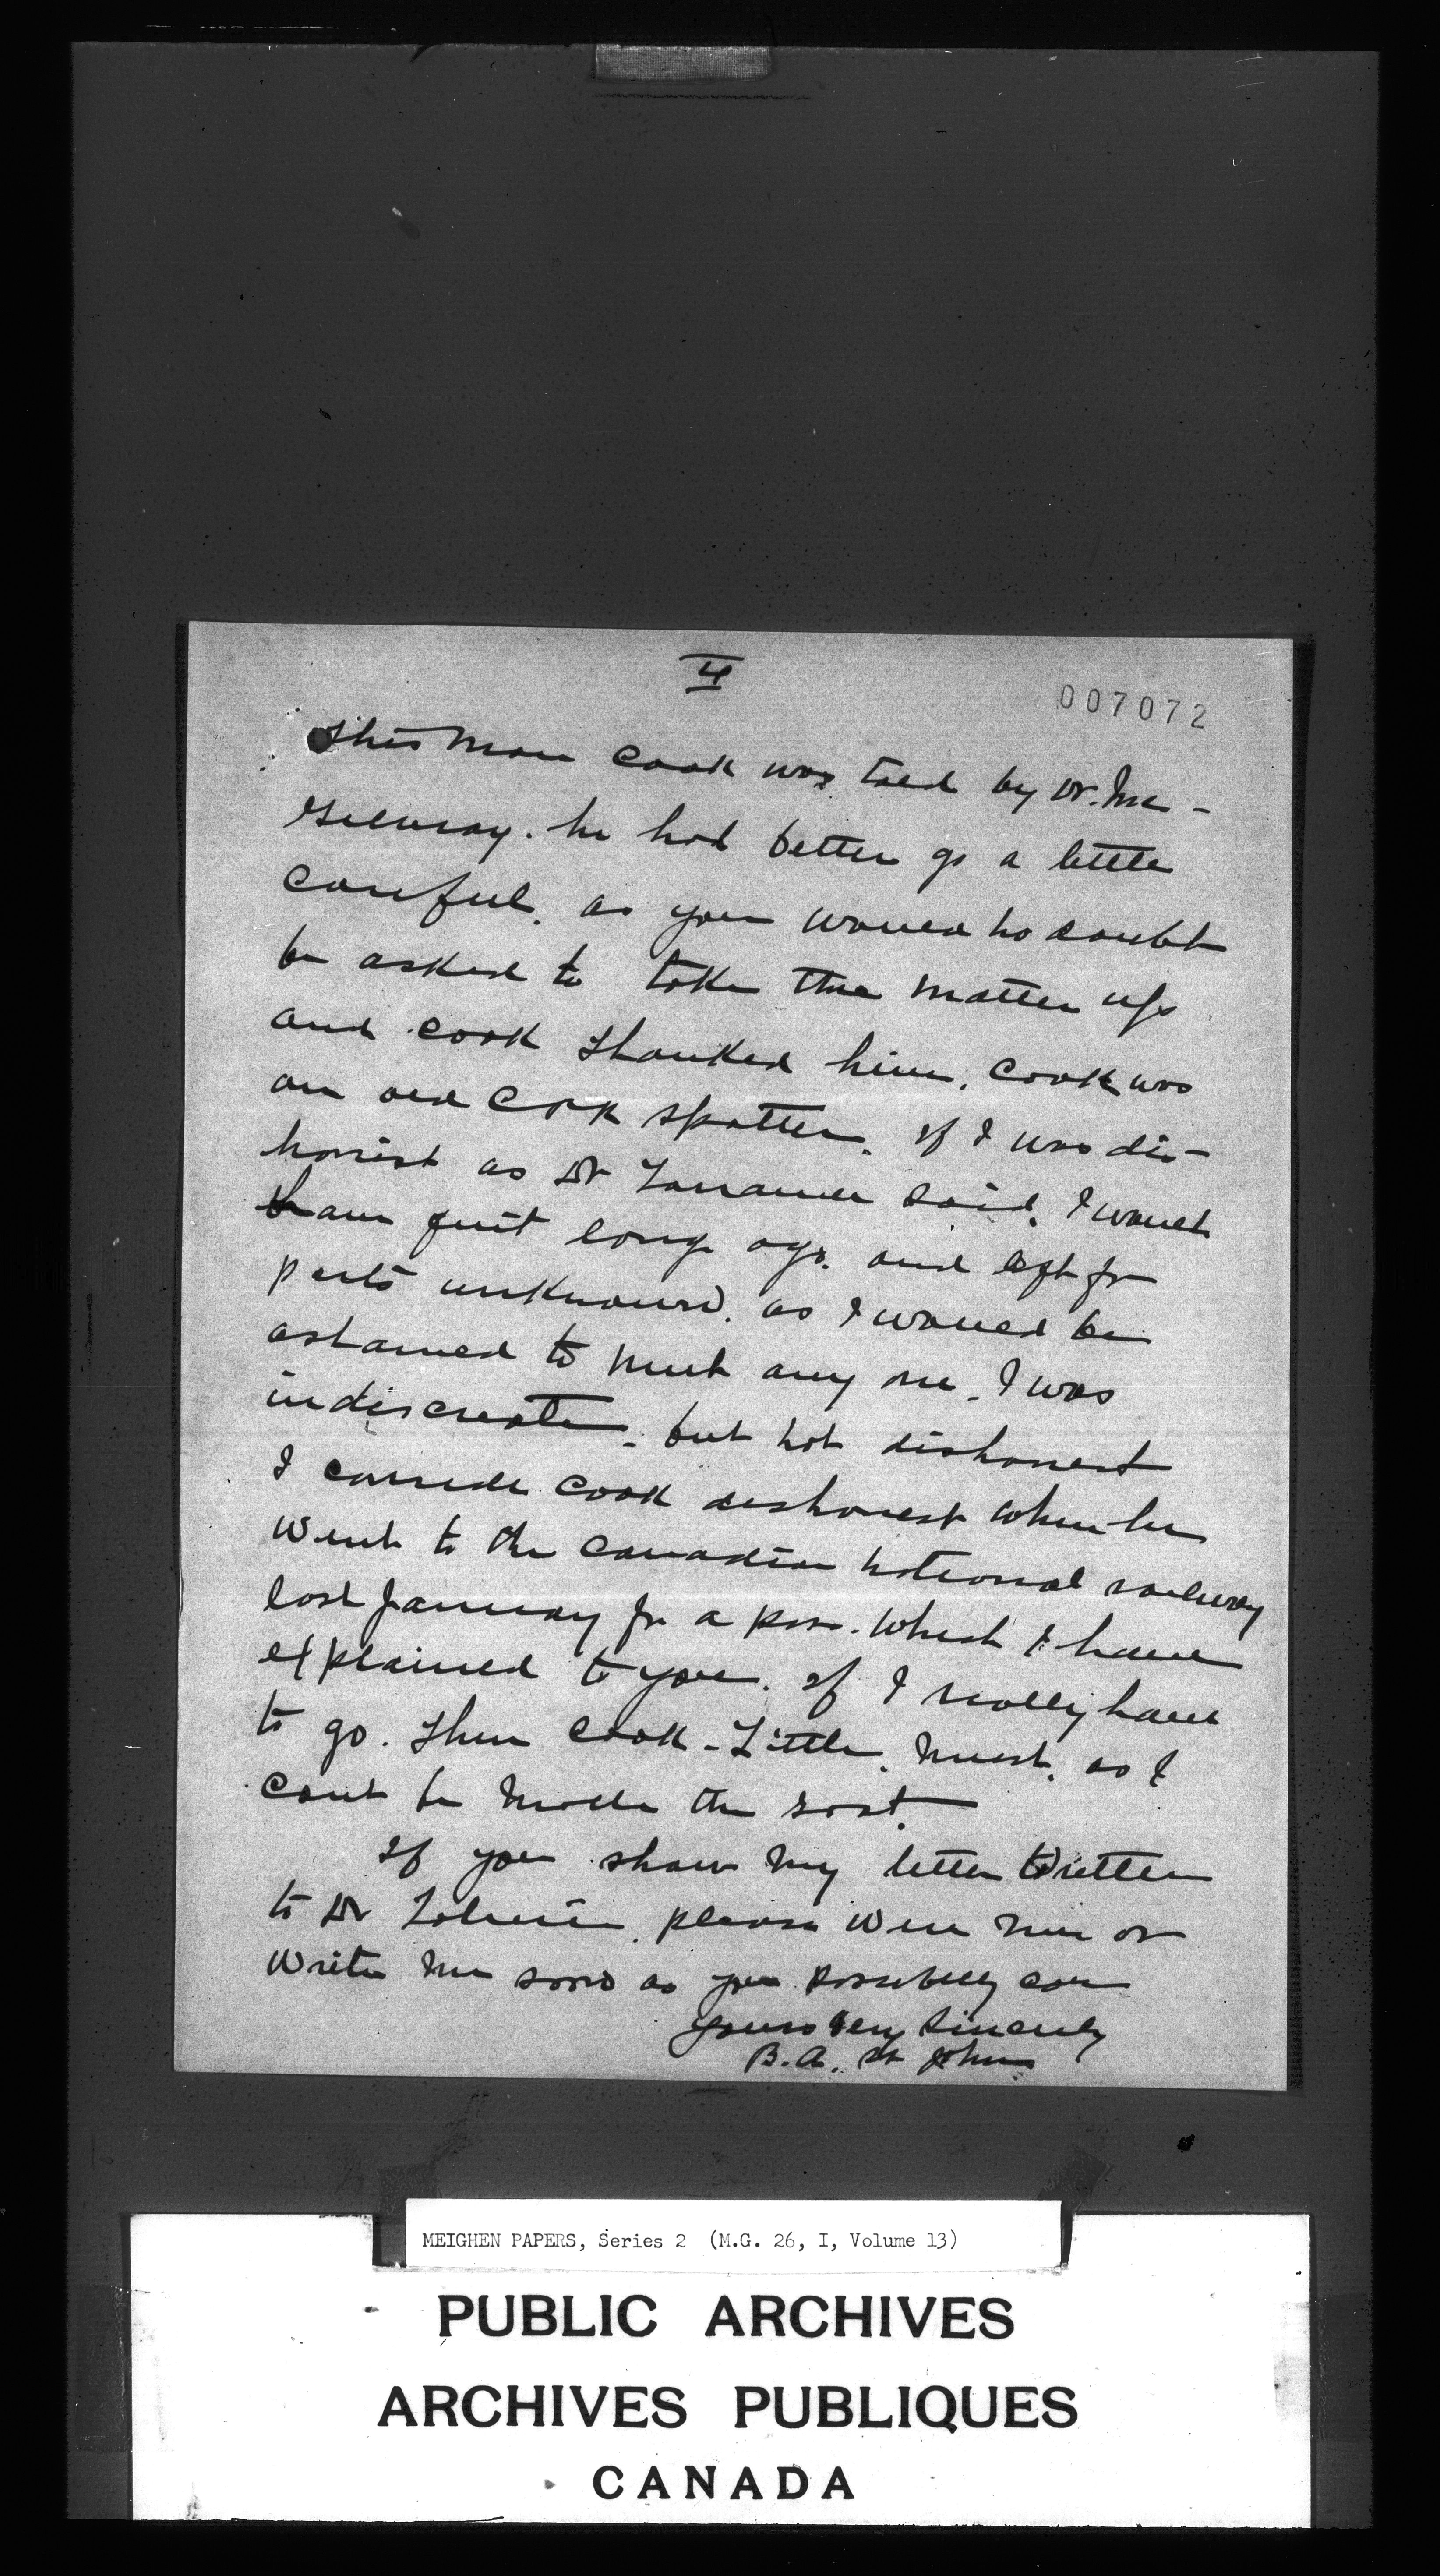 4
007072
This Man Cook was told by Dr. Mc-
Gilvray. he had better go a little
careful. as you would no doubt
be asked to take the matter up
and Cook thanked him. Cook was
an old CPR spotter. if I was dis-
honest as Dr Torrance said. I would
have quit long ago. and left for
parts unknown. as I would be
ashamed to meet any one. I was
indiscreate. but not dishonest
I conside Cook dishonest when he
went to the Canadian National railway
last January for a pass. which I have
explained to you. if I really have
to go. then Cook - Little. must. as I
cant be made the goat.
If you show my letter written
to Dr Tolmie. please wire me or
write me soon as you possibely can
yours very sincerely
B.A. St John.
MEIGHEN PAPERS, Series 2 (M.G. 26, I, Volume 13)
PUBLIC ARCHIVES
ARCHIVES PUBLIQUES
CANADA